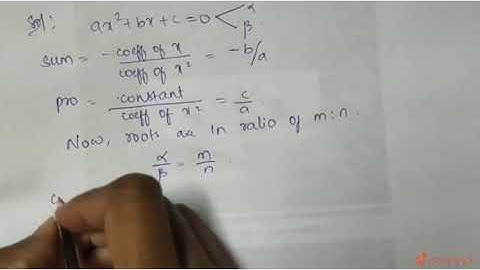 Sol: ax²+bx+c=0 < α
β
sum = - coeff of x / coeff of x² = -b/a
pro = constant / coeff of x² = c/a
Now, roots are in ratio of m:n.
α/β = m/n